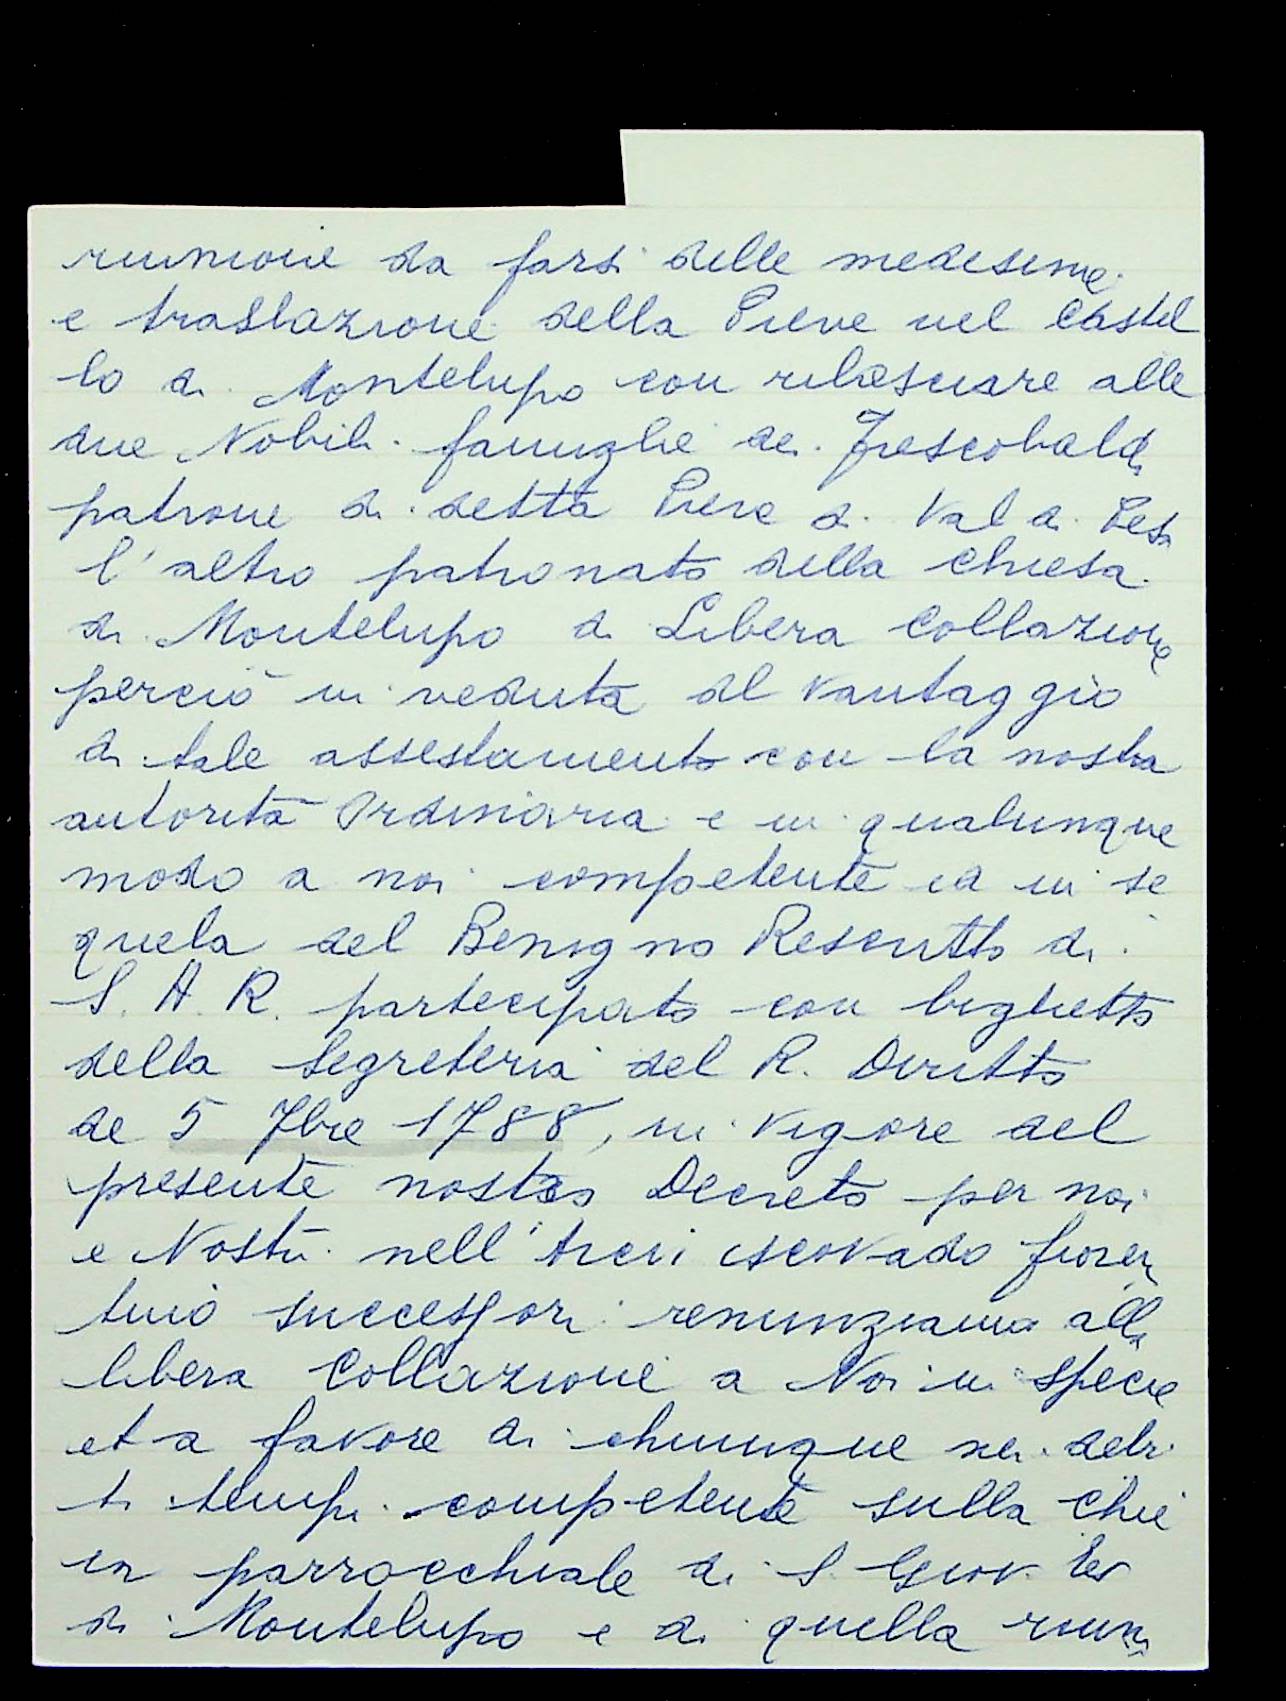 riunione da farsi delle medesime
e traslazione della Pieve nel Castel
lo di Montelupo con rilasciare alle
due Nobili famiglie dei Frescobaldi
patrone di detta Pieve di Val di Pesa
l'altro patronato della Chiesa
di Montelupo di Libera Collazione
perciò in veduta del vantaggio
di tale assestamento con la nostra
autorità Ordinaria e in qualunque
modo a noi competente ed in se
quela del Benigno Rescritto di
S. A. R. partecipato con biglietto
della Segreteria del R. Diritto
de 5 7bre 1788, in vigore del
presente nostro Decreto per noi
e Nostri nell'Arcivescovado fioren
tino successori renunziamo alla
libera Collazione a Noi in specie
et a favore di chiunque nei debi
ti tempi competente sulla Chie
sa parrocchiale di S. Giov. Ev
di Montelupo e di quella riuni